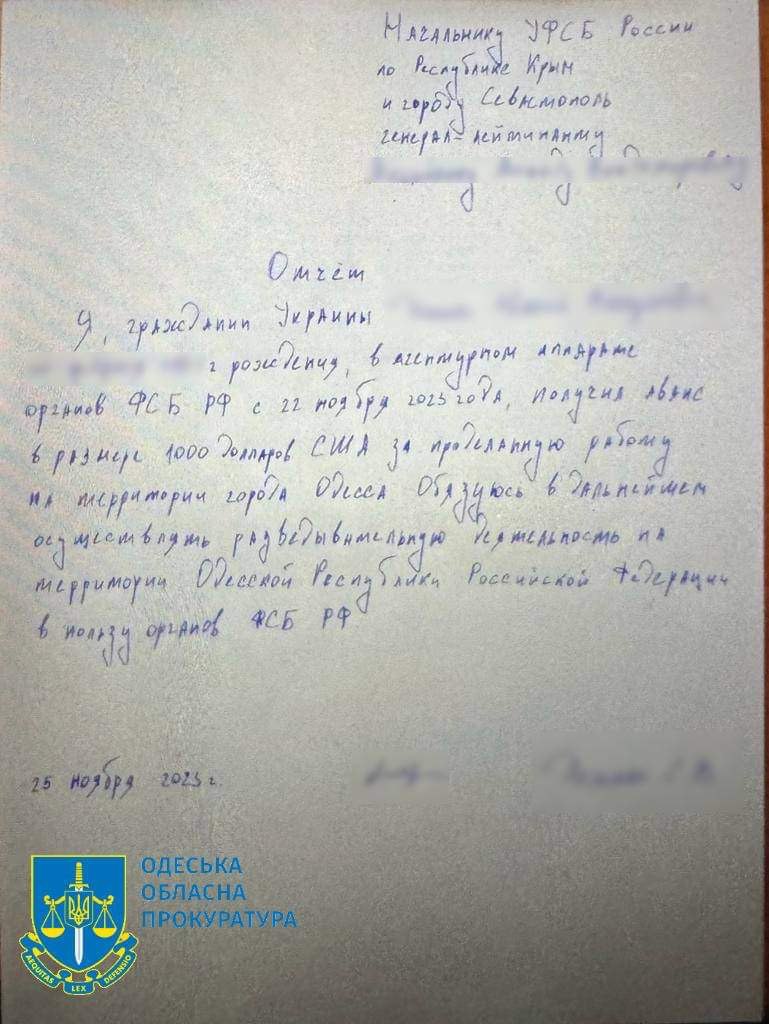 Начальнику УФСБ России
по Республике Крым
и городу Севастополь
генерал-лейтинанту
Отчёт
Я, гражданин Украины
г рождения, в агентурном аппарате
органов ФСБ РФ с 22 ноября 2023 года, получил аванс
в размере 1000 долларов США за проделанную работу
на территории города Одесса Обязуюсь в дальнейшем
осуществлять разведывательную деятельность на
территории Одесской Республики Российской Федерации
в пользу органов ФСБ РФ
25 ноября 2023 г.
ОДЕСЬКА
ОБЛАСНА
ПРОКУРАТУРА
AEQUITAS LEX DEFENSIO